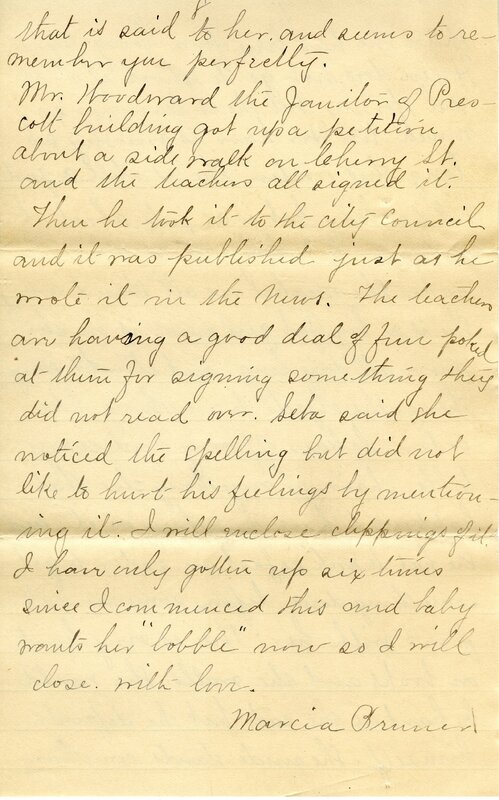 8
that is said to her. and seems to re-
member you perfectly.
Mr. Woodward the Janitor of Pres-
cott building got up a petition
about a side walk on Cherry St.
and the teachers all signed it.
Then he took it to the city council
and it was published just as he
wrote it in the News. The teachers
are having a good deal of fun poked
at them for signing something they
did not read over. Seba said she
noticed the spelling but did not
like to hurt his feelings by mention-
ing it. I will enclose clippings of it.
I have only gotten up six times
since I commenced this and baby
wants her "bobble" now so I will
close. with love.
Marcia Bruner